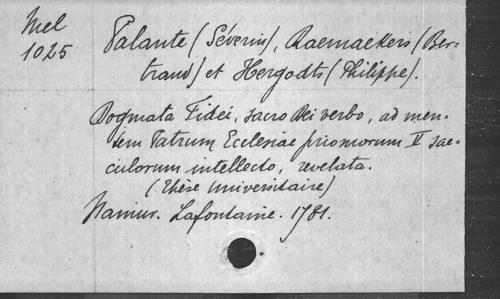 Mel
1025
Palante (Séverin), Raemaekers (Ber-
trand) et Hergodts (Philippe).
Dogmata Fidei, sacro Dei verbo, ad men-
tem Patrum Ecclesiae priomorum V sae-
culorum intellecto, revelata.
(Thèse universitaire)
Namur. Lafontaine. 1781.